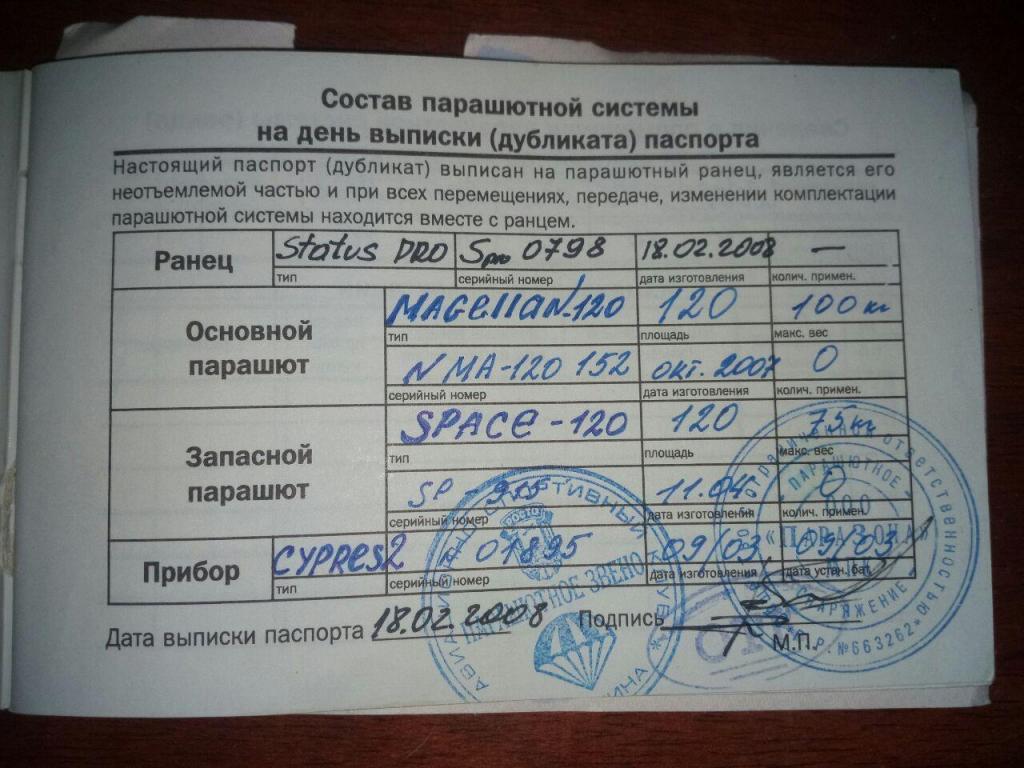 Состав парашютной системы
на день выписки (дубликата) паспорта
Настоящий паспорт (дубликат) выписан на парашютный ранец, является его
неотъемлемой частью и при всех перемещениях, передаче, изменении комплектации
парашютной системы находится вместе с ранцем.
Ранец Status PRO Spro 0798 18.02.2008 —
тип серийный номер дата изготовления колич. примен.
Основной парашют MAGellan-120 120 100 кг
тип площадь макс. вес
N MA-120 152 окт. 2007 0
серийный номер дата изготовления колич. примен.
Запасной парашют SPACe-120 120 75 кг
тип площадь макс. вес
SP - 11.04 0
серийный номер дата изготовления колич. примен.
Прибор CYPRES2 01895 09/03 09/03
тип серийный номер дата изготовления дата устан. бат.
Дата выписки паспорта 18.02.2008 Подпись
М.П.
СПОРТИВНЫЙ КЛУБ
РОСТО
ПАРАШЮТНОЕ ЗВЕНО
ответственностью
ПАРАШЮТНОЕ
ООО
«ПАРАЗОНА»
СНАРЯЖЕНИЕ
Р. №663262